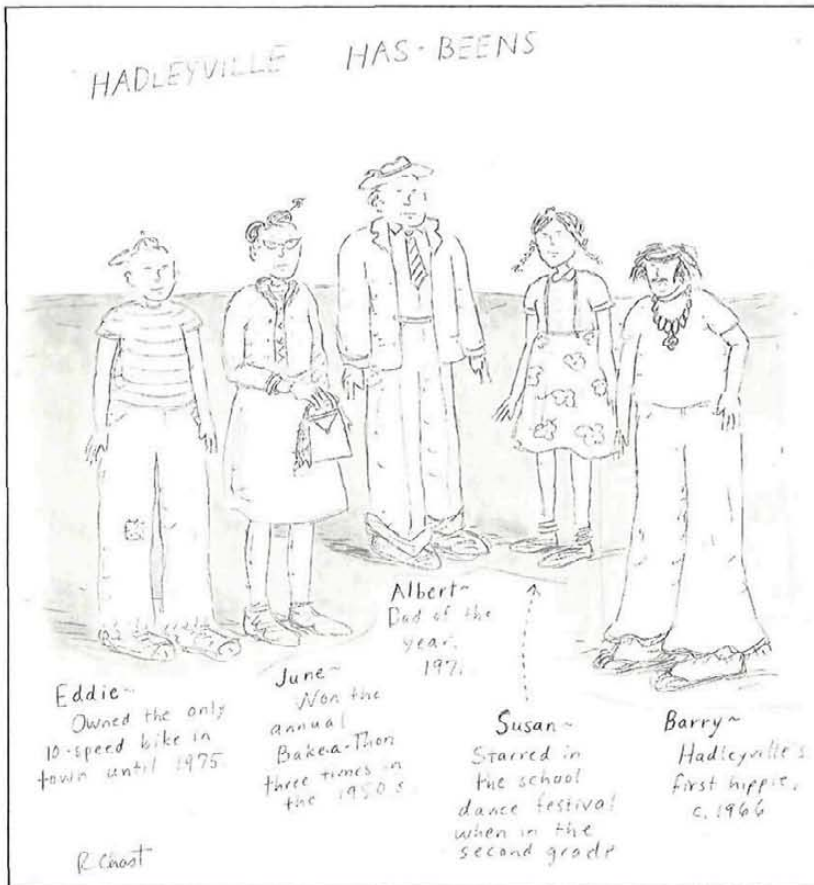 HADLEYVILLE HAS-BEENS
Eddie~
Owned the only
10-speed bike in
town until 1975.
June~
Won the
annual
Bake-a-Thon
three times in
the 1950s.
Albert~
Dad of the
year,
Susan~
Starred in
the school
dance festival
when in the
second grade
Barry~
Hadleyville's
first hippie,
c. 1966
R. Chast